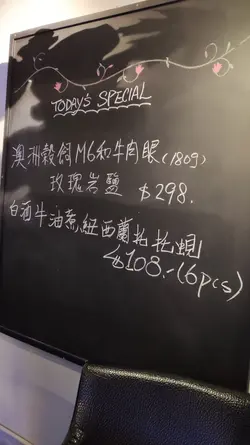 TODAY'S SPECIAL
澳洲穀飼M6和牛肉眼(180g)
玫瑰岩鹽 $298.
白酒牛油煮紐西蘭鉆鉆蜆
$108.-(6pcs)